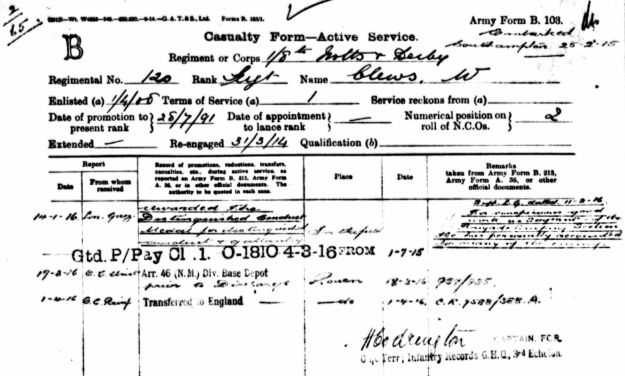 Casualty Form—Active Service.
Army Form B. 103.
B
Embarked
Southampton 25-2-15
Regiment or Corps 1/8th Notts & Derby
Regimental No. 120 Rank Sgt Name Clews. W
Enlisted (a) 1/4/08 Terms of Service (a) 1 Service reckons from (a)
Date of promotion to present rank } 28/7/91 Date of appointment to lance rank } — Numerical position on roll of N.C.Os. } 2
Extended — Re-engaged 31/3/14 Qualification (b)
Report
Date From whom received
Record of promotions, reductions, transfers, casualties, etc., during active service, as reported on Army Form B. 213, Army Form A. 36, or in other official documents. The authority to be quoted in each case.
Place
Date
Remarks
taken from Army Form B. 213, Army Form A. 36, or other official documents.
14-1-16 Lon. Gaz. Awarded The
Distinguished Conduct
Medal for distinguished
conduct & gallantry
In the field
dated 11-3-16
For conspicuous good
Gtd. P/Pay Cl. 1. O-1810 4-3-16 FROM 1-7-15
19-3-16 Arr. 46 (N.M.) Div. Base Depot
prior to Discharge
Rouen 18-3-16
1-4-16 Transferred to England — do 1-4-16
CAPTAIN, FOR
Infantry Records G.H.Q., 3rd Echelon.